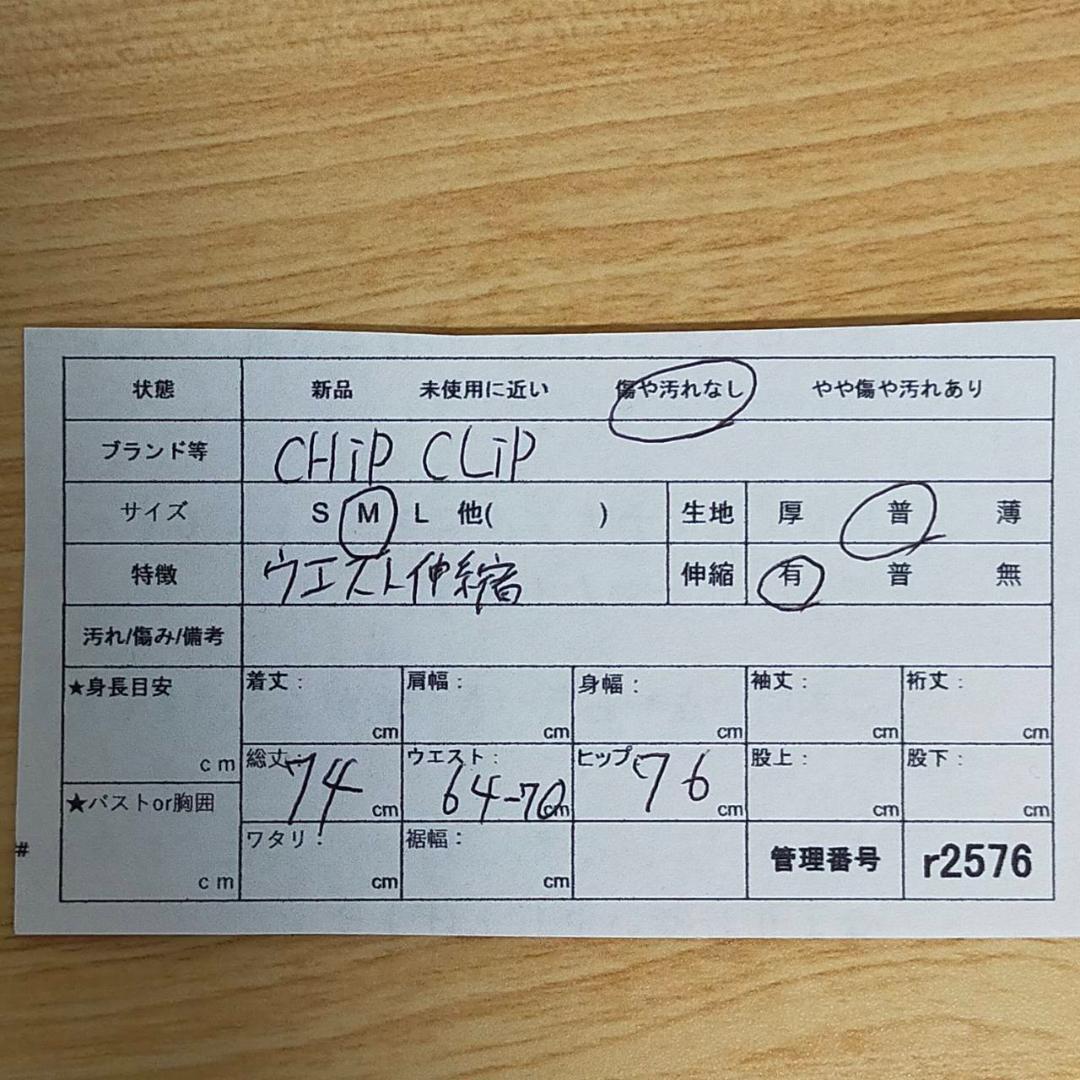 状態 新品 未使用に近い 傷や汚れなし やや傷や汚れあり
ブランド等 CHiP CLiP
サイズ S M L 他( ) 生地 厚 普 薄
特徴 ウエスト伸縮 伸縮 有 普 無
汚れ/傷み/備考
★身長目安 cm 着丈: cm 肩幅: cm 身幅: cm 袖丈: cm 裄丈: cm
総丈: 74 cm ウエスト: 64-70 cm ヒップ: 76 cm 股上: cm 股下: cm
★バストor胸囲 cm ワタリ: cm 裾幅: cm 管理番号 r2576
#